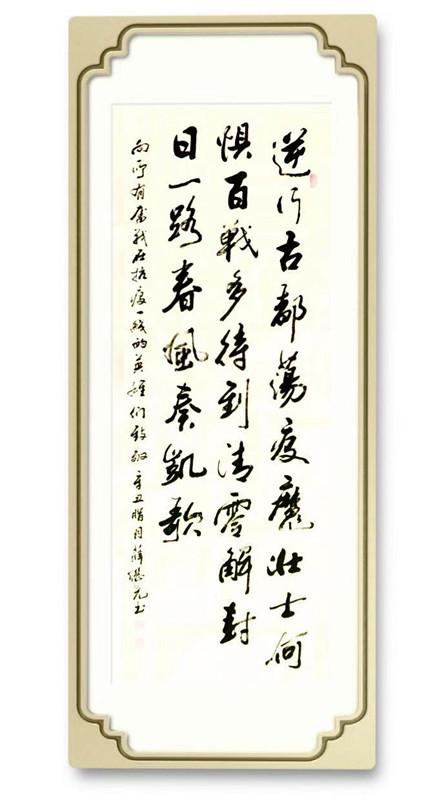 逆行古都荡疫魔壮士何
惧百戰多待到清零解封
日一路春風奏凱歌
向所有奋战在抗疫一线的英雄们致敬 辛丑腊月薛 元书